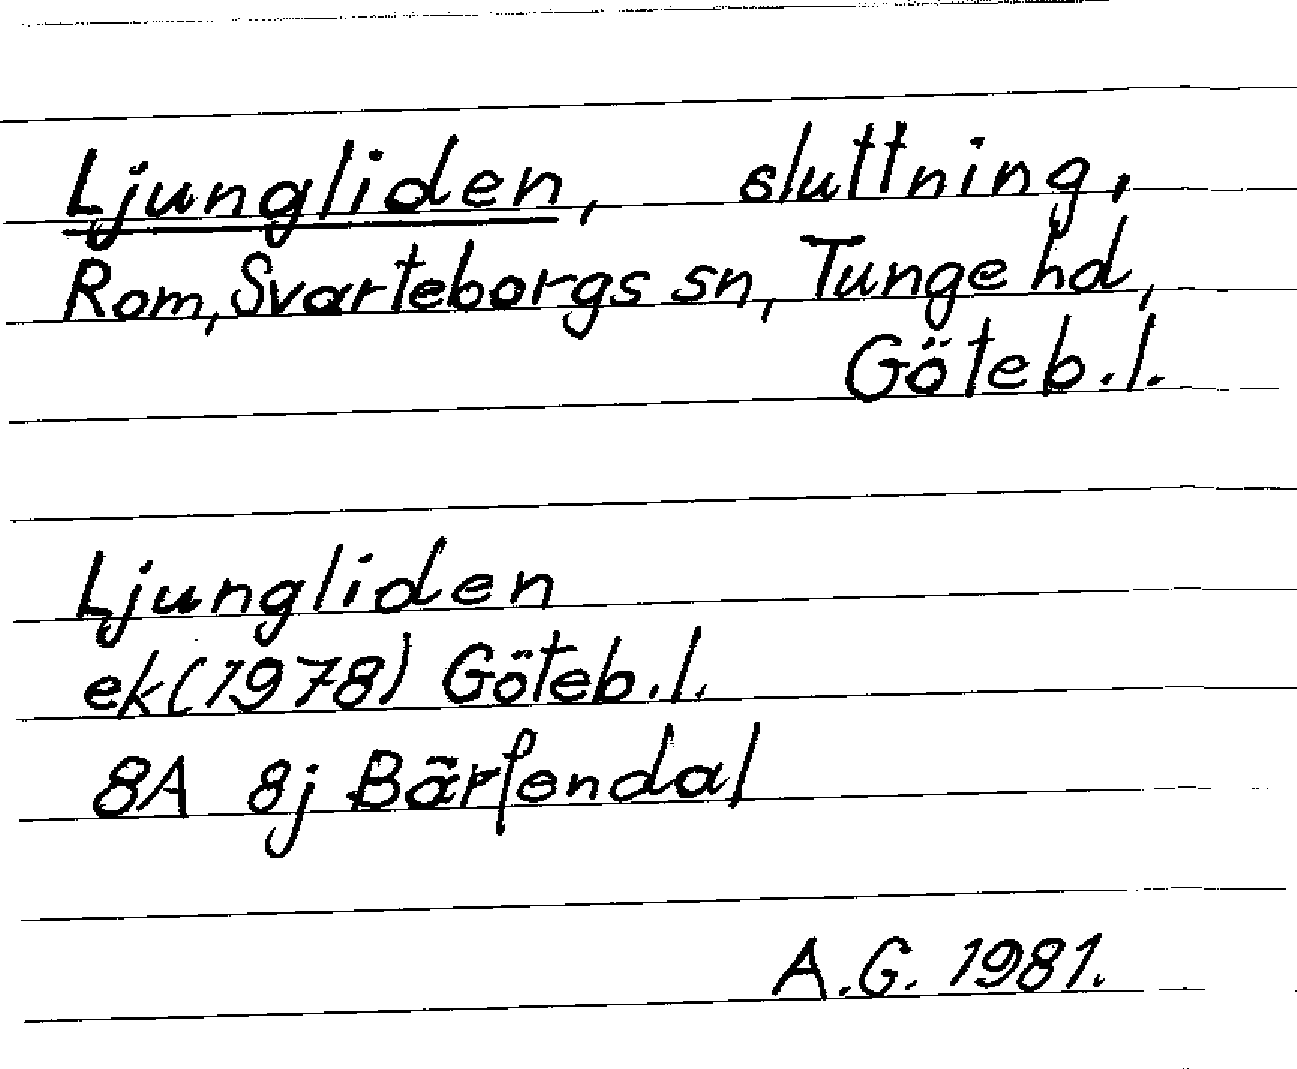 Ljungliden, sluttning,
Rom, Svarteborgs sn, Tunge hd,
Göteb. l.
Ljungliden
ek (1978) Göteb. l.
8A 8j Bärfendal
A.G. 1981.